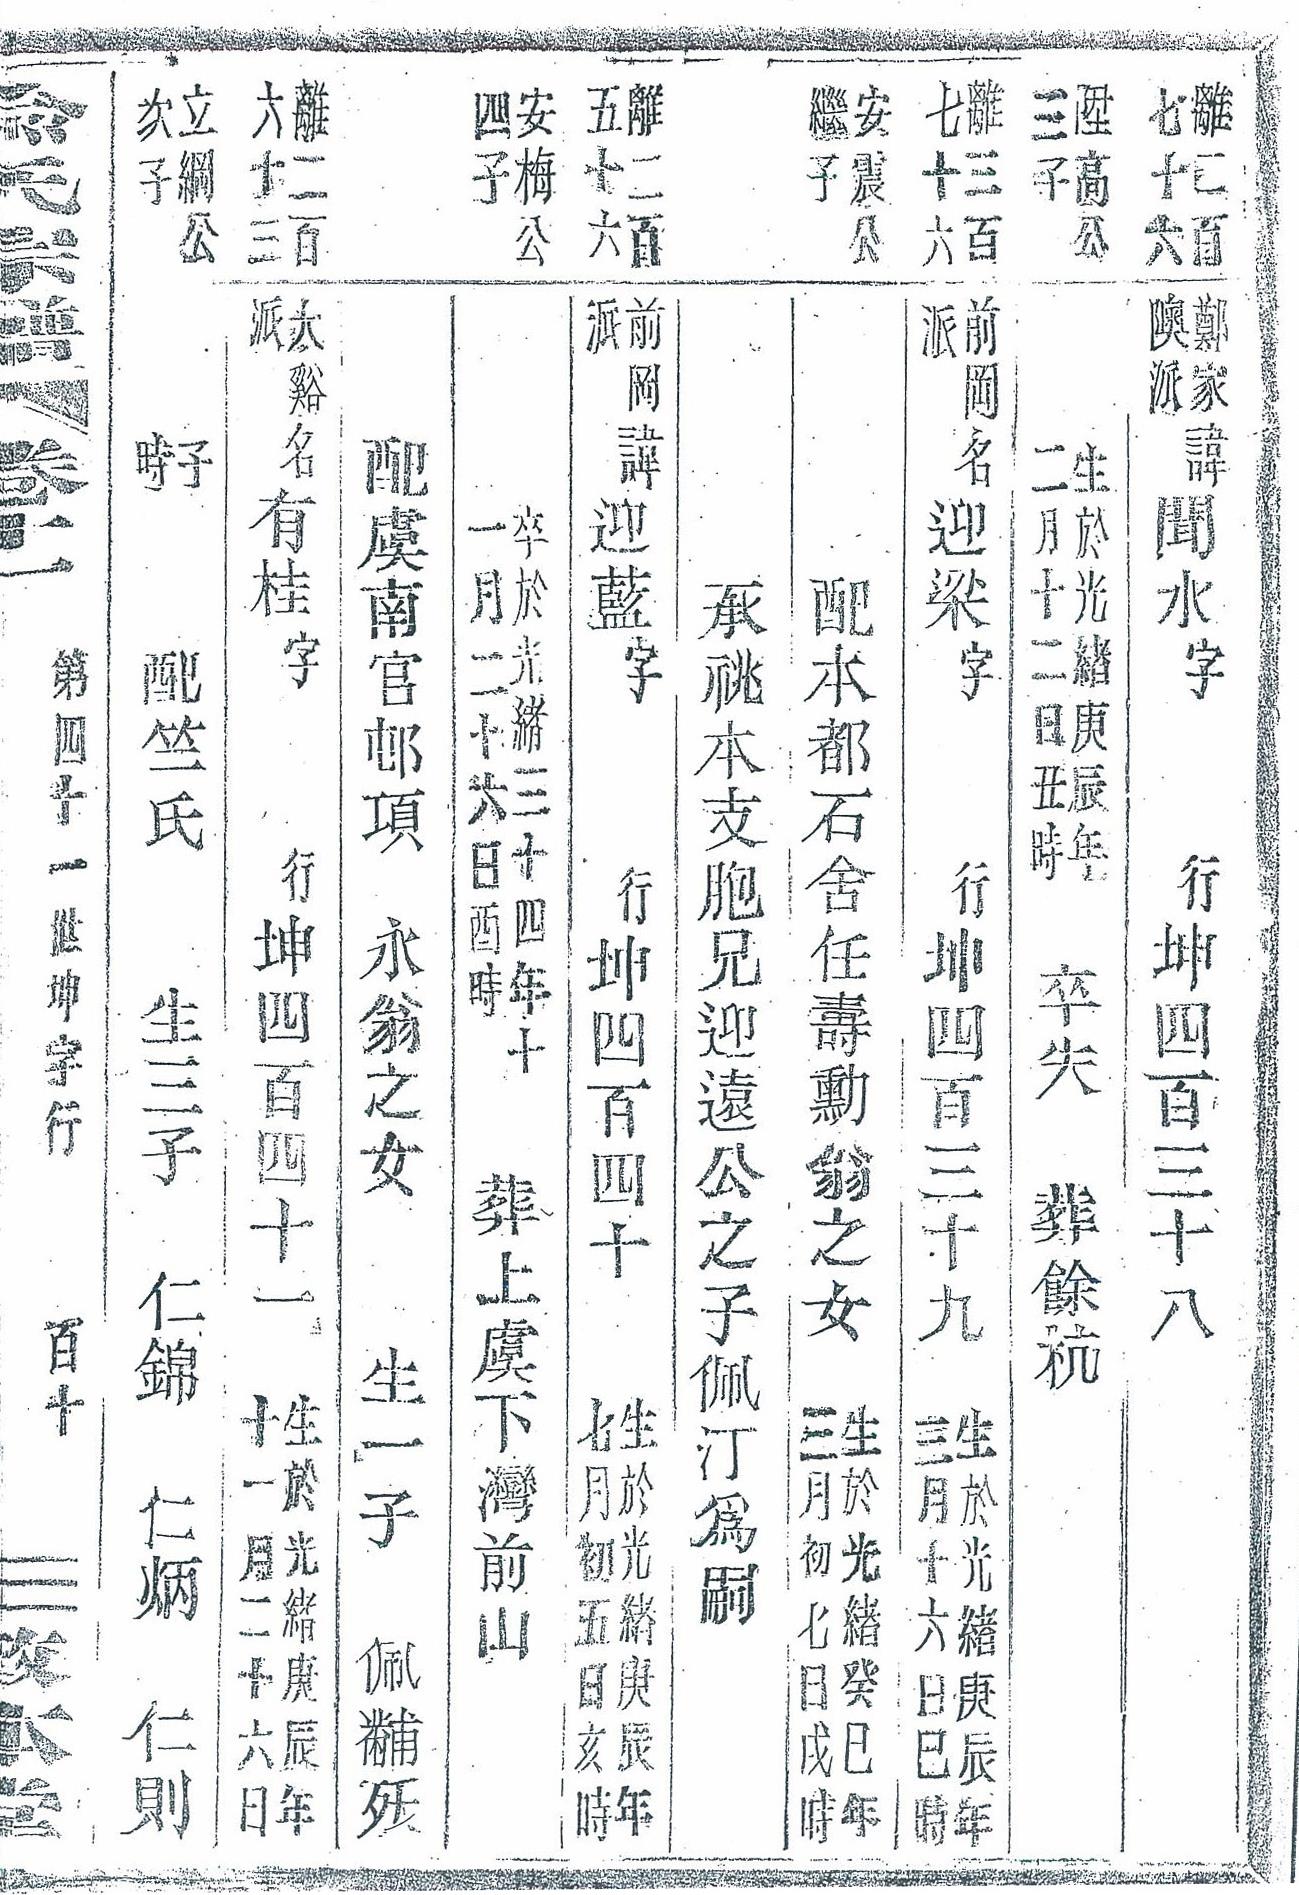 離二百七十六 鄭家隩派諱聞水字 行坤四百三十八
陞高公三子 生於光緒庚辰年二月十二日丑時 卒失 葬餘杭
離三百七十六 前岡派名迎梁字 行坤四百三十九 生於光緒庚辰年三月十六日巳時
安震公繼子 配本都石舍任壽勳翁之女 生於光緒癸巳年三月初七日戌時
承祧本支胞兄迎遠公之子佩汀爲嗣
離二百五十六 前岡派諱迎藍字 行坤四百四十 生於光緒庚辰年七月初五日亥時
安梅公四子 卒於光緒三十四年十一月二十六日酉時 葬上虞下灣前山
配虞南官邨項 永翁之女 生一子 佩黼殀
離二百六十三 太谿派名有桂字 行坤四百四十一 生於光緒庚辰年十一月二十六日
立綱公次子 子時 配竺氏 生三子 仁錦 仁炳 仁則
氏宗譜 卷二 第四十一世坤字行 百十 本堂